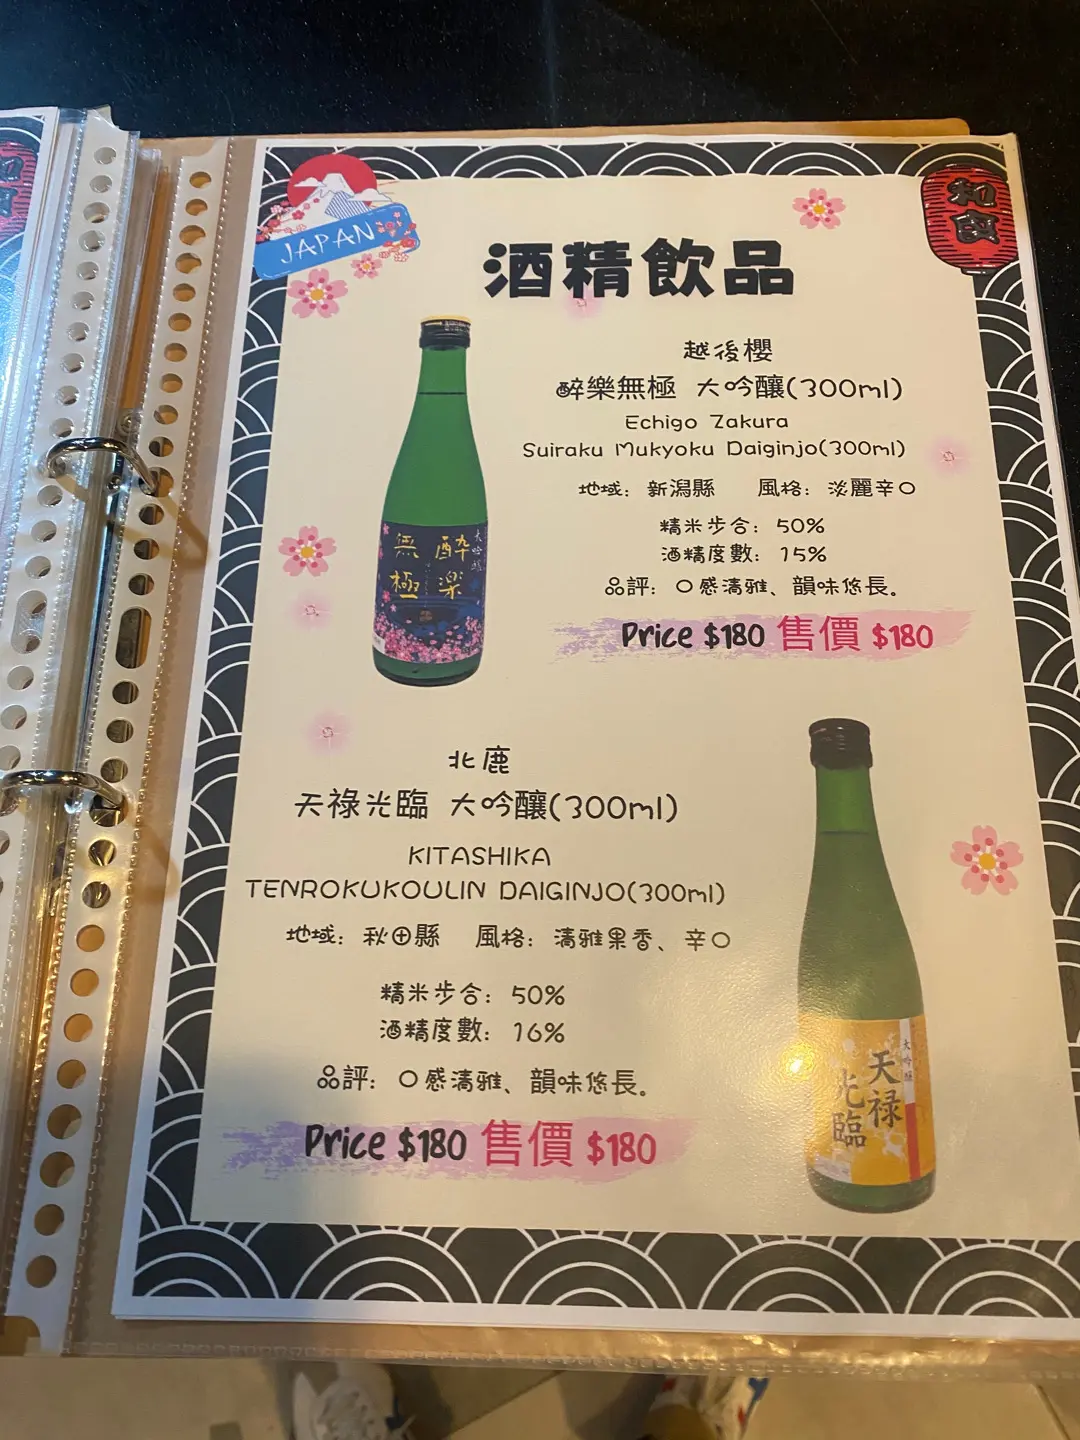 JAPAN
和食
酒精飲品
越後櫻
醉樂無極 大吟釀(300ml)
Echigo Zakura
Suiraku Mukyoku Daiginjo(300ml)
地域：新潟縣 風格：淡麗辛口
精米步合：50%
酒精度數：15%
品評：口感清雅、韻味悠長。
Price $180 售價 $180
大吟醸
酔楽
無極
北鹿
天祿光臨 大吟釀(300ml)
KITASHIKA
TENROKUKOULIN DAIGINJO(300ml)
地域：秋田縣 風格：清雅果香、辛口
精米步合：50%
酒精度數：16%
品評：口感清雅、韻味悠長。
Price $180 售價 $180
大吟醸
天禄
光臨